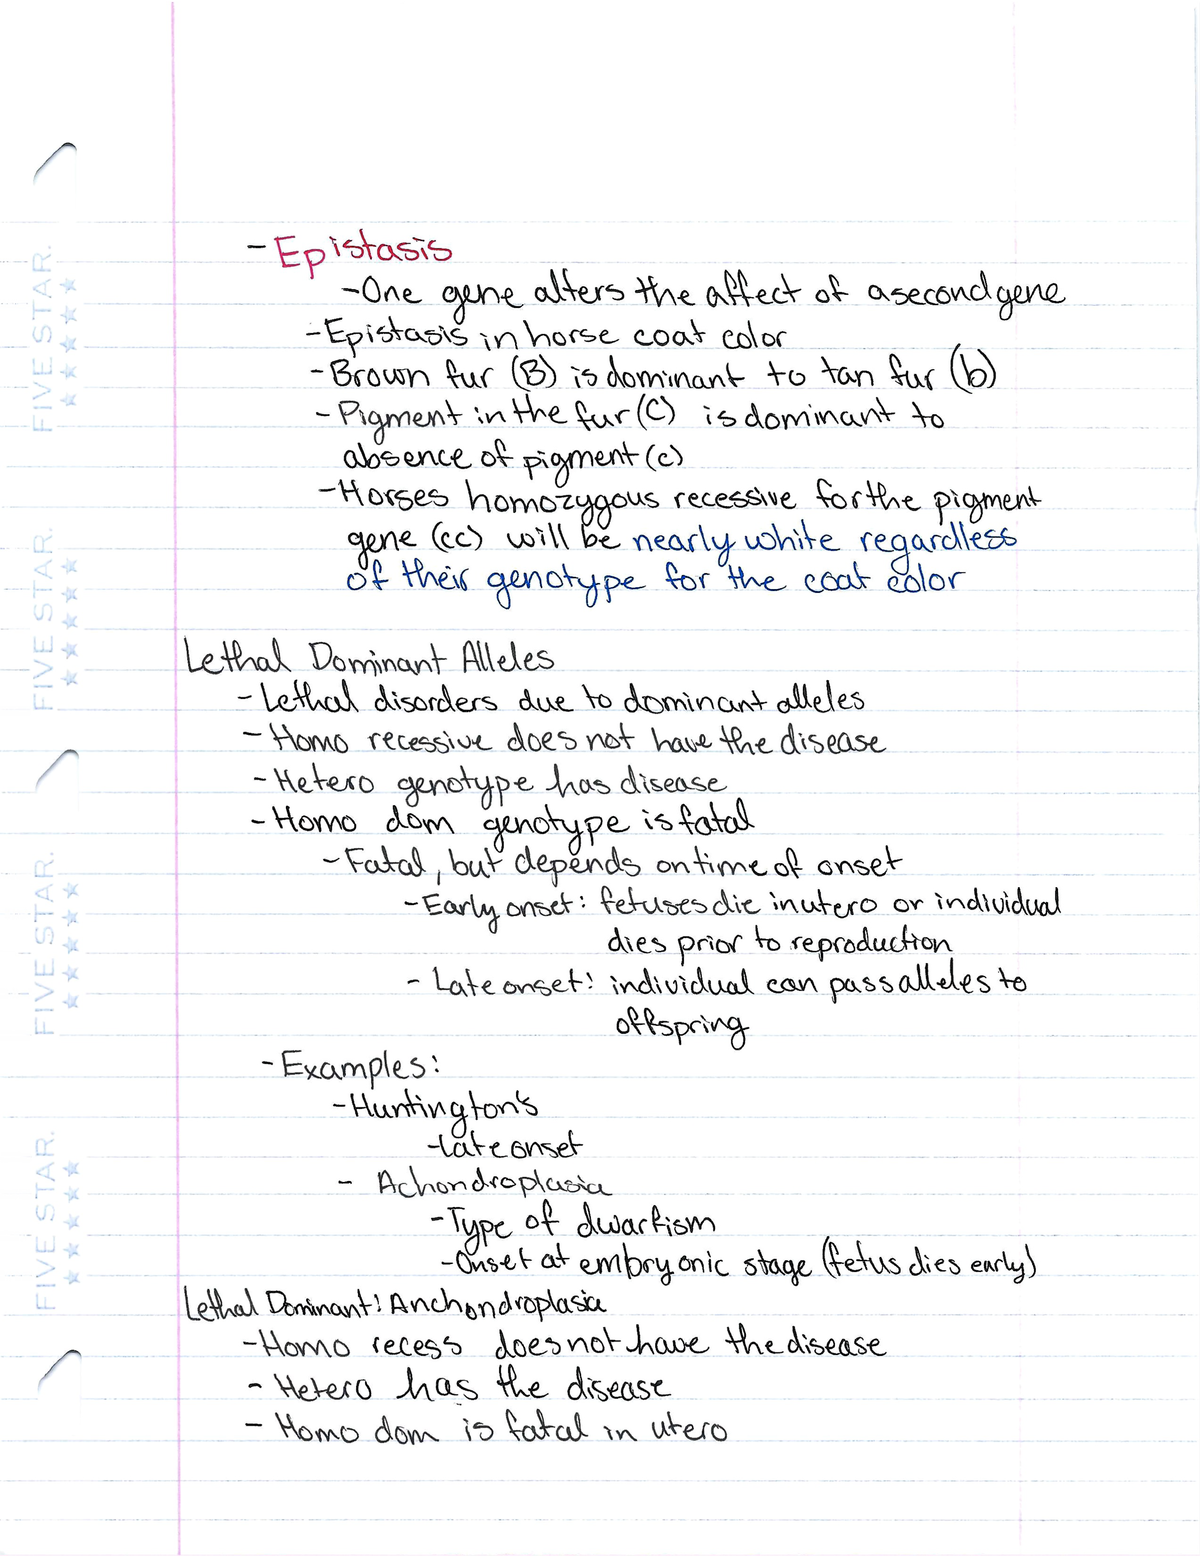 - Epistasis
-One gene alters the affect of a second gene
-Epistasis in horse coat color
-Brown fur (B) is dominant to tan fur (b)
-Pigment in the fur (C) is dominant to
absence of pigment (c)
-Horses homozygous recessive for the pigment
gene (cc) will be nearly white regardless
of their genotype for the coat color
Lethal Dominant Alleles
-Lethal disorders due to dominant alleles
-Homo recessive does not have the disease
-Hetero genotype has disease
-Homo dom genotype is fatal
-Fatal, but depends on time of onset
-Early onset: fetuses die in utero or individual
dies prior to reproduction
-Late onset: individual can pass alleles to
offspring
-Examples:
-Huntington's
-late onset
- Achondroplasia
-Type of dwarfism
-Onset at embryonic stage (fetus dies early)
Lethal Dominant: Anchondroplasia
-Homo recess does not have the disease
- Hetero has the disease
- Homo dom is fatal in utero
FIVE STAR.
FIVE STAR.
FIVE STAR.
FIVE STAR.